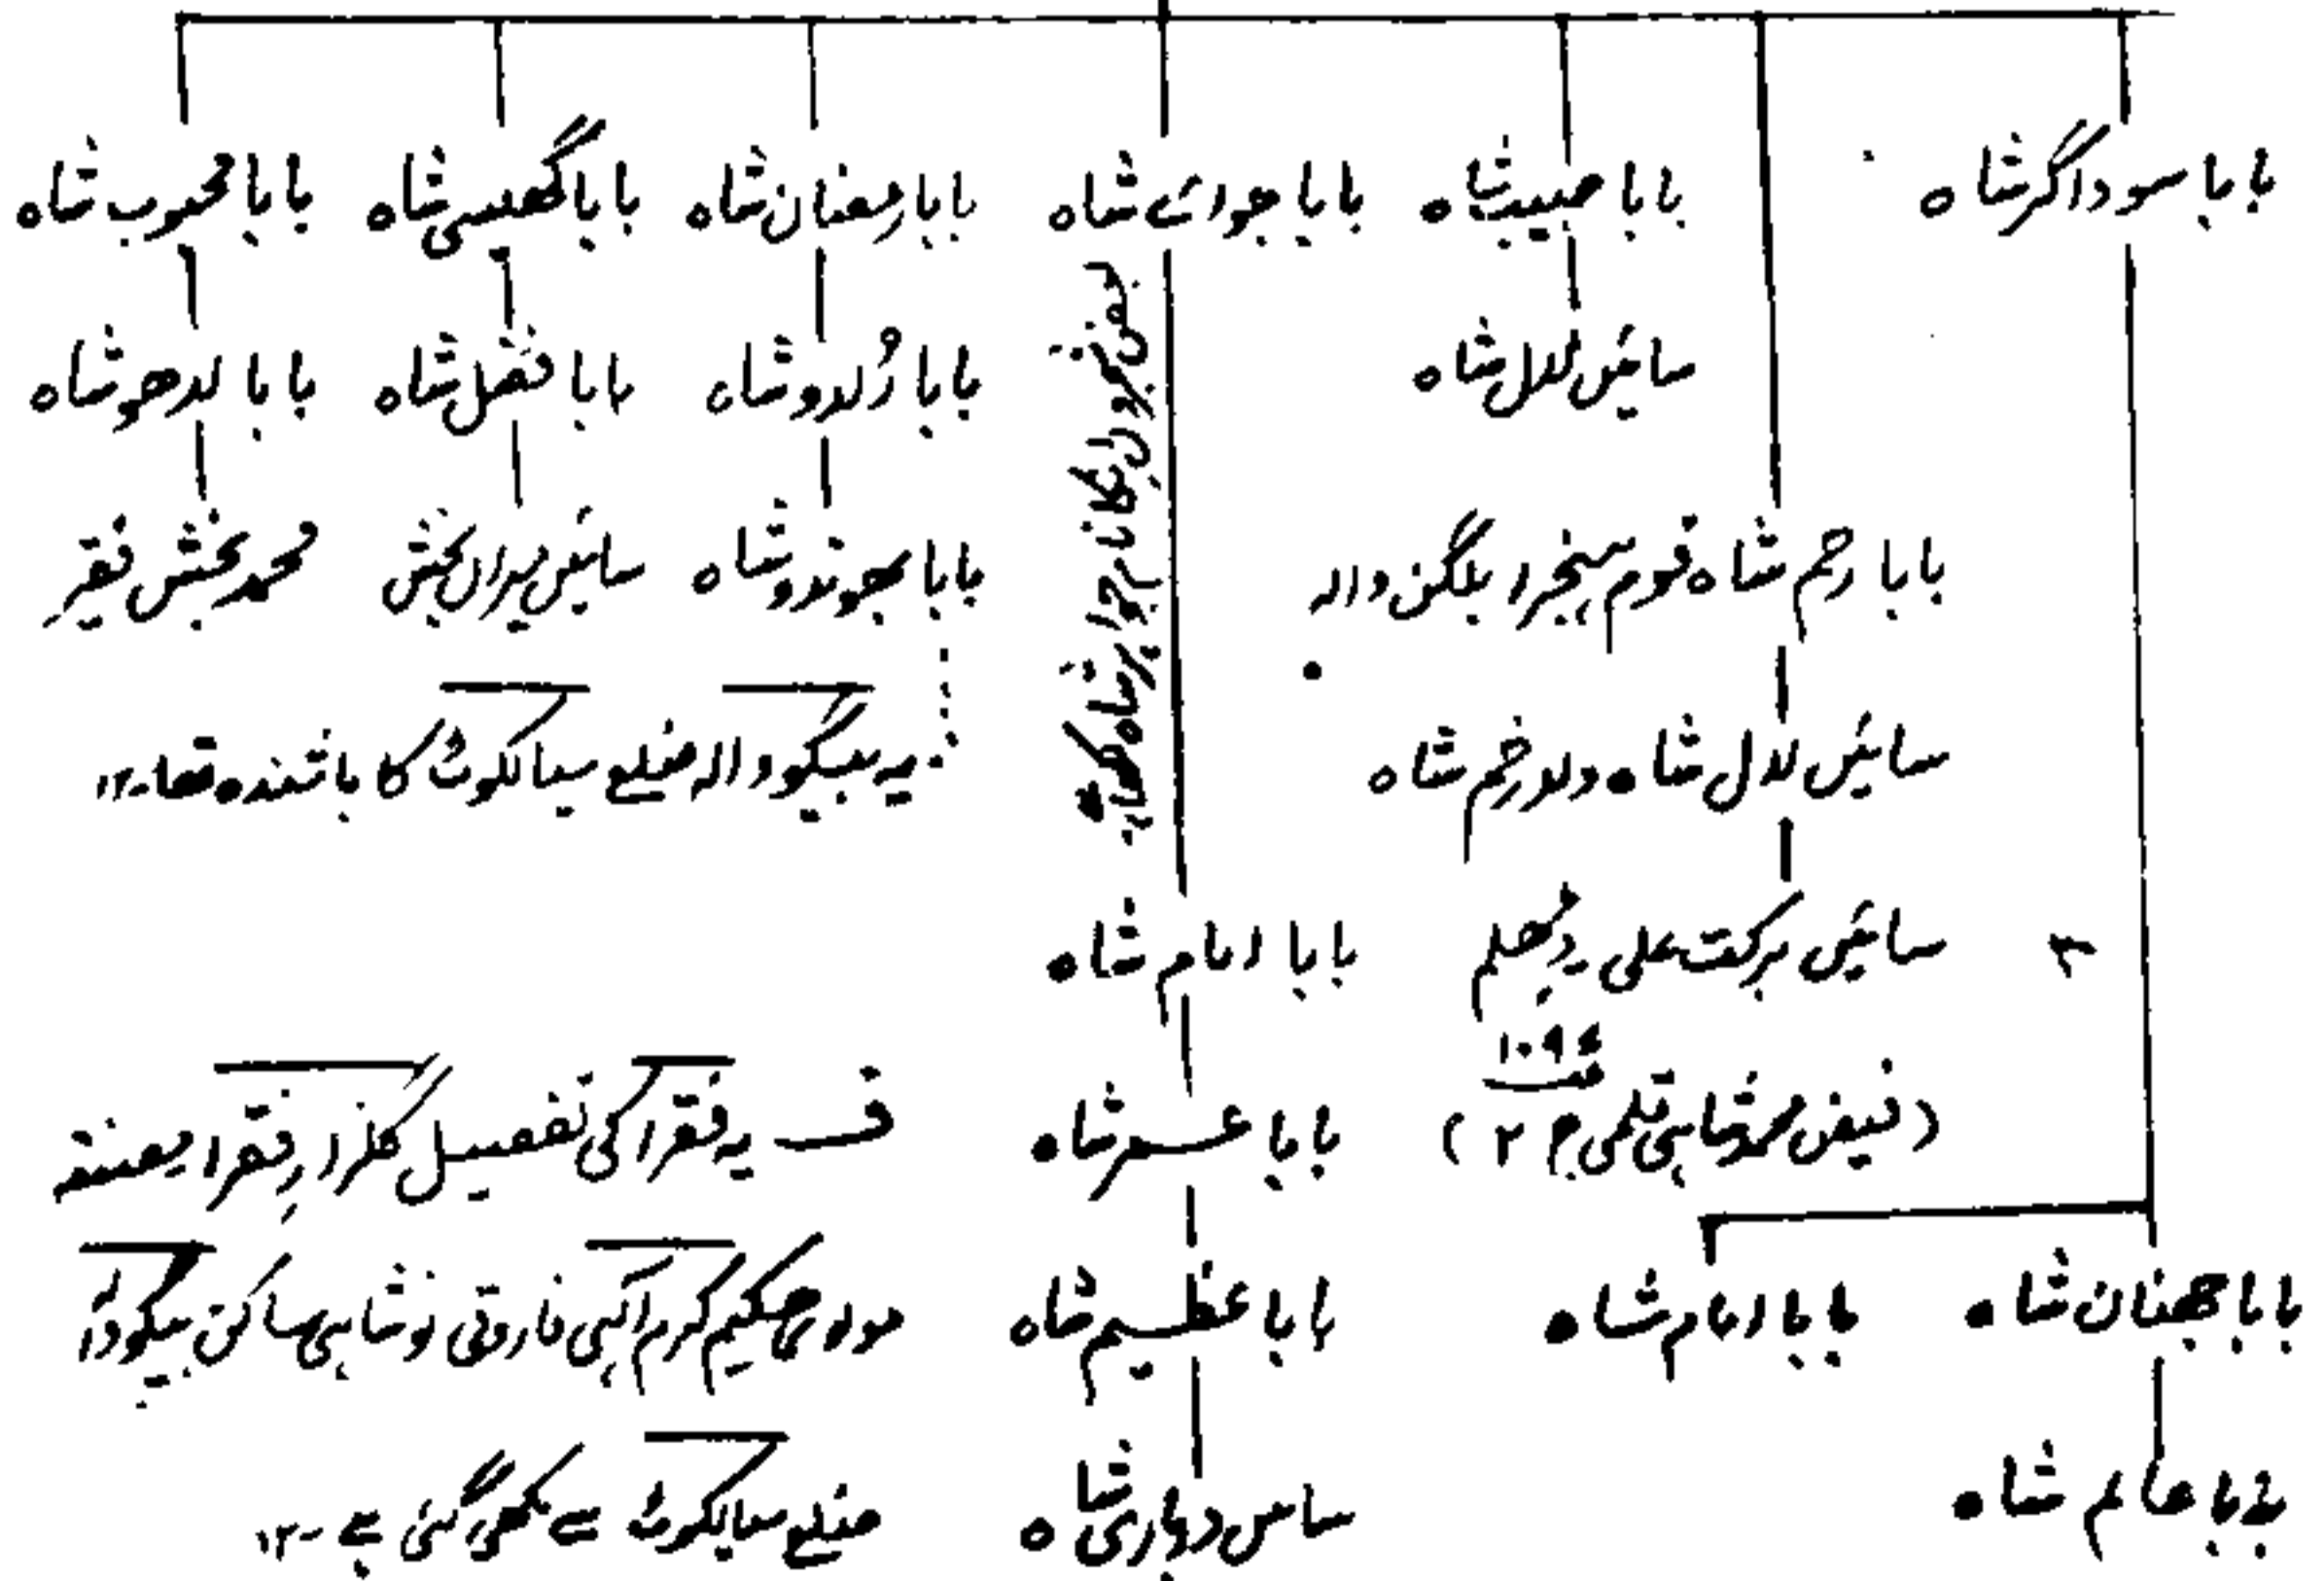 بابا سوداگر شاہ
بابا حبیب شاہ
بابا جواۓ شاہ
بابا رمضان شاہ
بابا گھسی شاہ
بابا محبوب شاہ
سائیں لال شاہ
بابا رُلدو شاہ
بابا فضل شاہ
بابا لدھو شاہ
بابا رحیم شاہ قوم
بابا جوندو شاہ
سائیں میراں بخش
محمد بخش فقیر
سائیں لال شاہ ولد رحیم شاہ
یہ بیگووالہ ضلع سیالکوٹ کا باشندہ تھا۔ ۱۲
سائیں برکت علی
بابا امام شاہ
(فیض محمد شاہی قلمی ج ۲)
بابا عمر شاہ
ف یہ فقرا کی تفصیل گلزار فقرا مصنفہ
بابا جھنان شاہ
بابا امام شاہ
بابا عظیم شاہ
مولوی حکیم کرم الٰہی فاروقی نوشاہی ساکن بیگووالہ
بابا عالم شاہ
درباری شاہ
ضلع سیالکوٹ سے لکھی گئی ہے۔ ۱۲